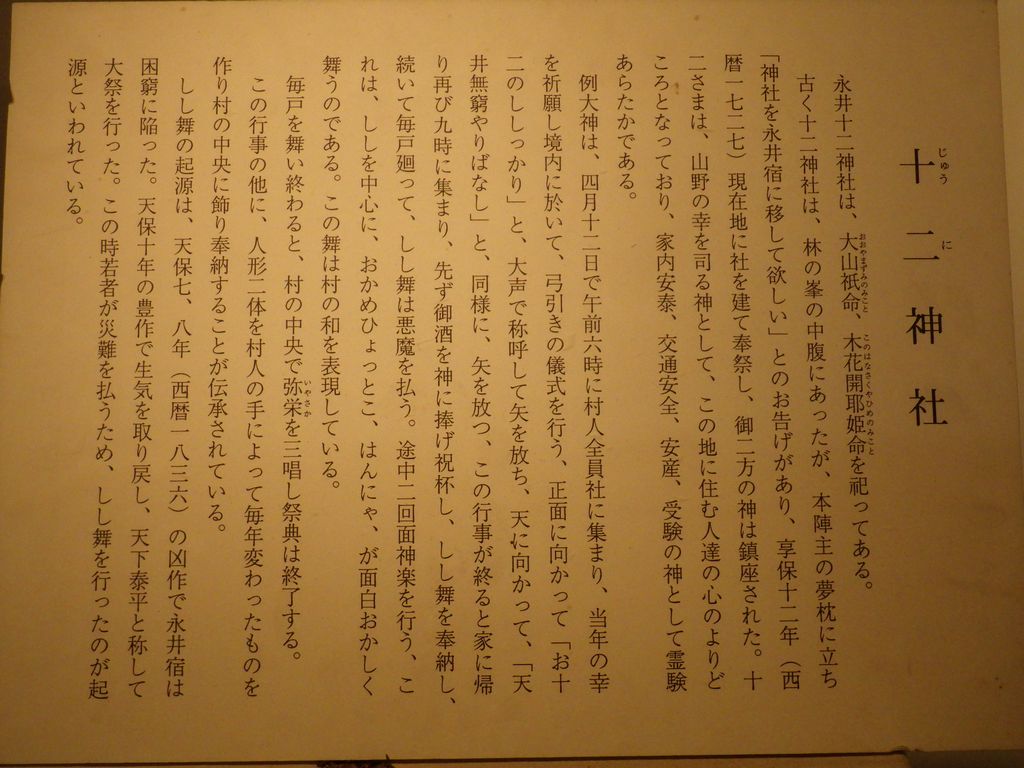 十二神社
永井十二神社は、大山祇命、木花開耶姫命を祀ってある。
古く十二神社は、林の峯の中腹にあったが、本陣主の夢枕に立ち
「神社を永井宿に移して欲しい」とのお告げがあり、享保十二年（西
暦一七二七）現在地に社を建て奉祭し、御二方の神は鎮座された。十
二さまは、山野の幸を司る神として、この地に住む人達の心のよりど
ころとなっており、家内安泰、交通安全、安産、受験の神として霊験
あらたかである。
例大神は、四月十二日で午前六時に村人全員社に集まり、当年の幸
を祈願し境内に於いて、弓引きの儀式を行う、正面に向かって「お十
二のししっかり」と、大声で称呼して矢を放ち、天に向かって、「天
井無窮やりばなし」と、同様に、矢を放つ、この行事が終ると家に帰
り再び九時に集まり、先ず御酒を神に捧げ祝杯し、しし舞を奉納し、
続いて毎戸廻って、しし舞は悪魔を払う。途中二回面神楽を行う、こ
れは、ししを中心に、おかめひょっとこ、はんにゃ、が面白おかしく
舞うのである。この舞は村の和を表現している。
毎戸を舞い終わると、村の中央で弥栄を三唱し祭典は終了する。
この行事の他に、人形二体を村人の手によって毎年変わったものを
作り村の中央に飾り奉納することが伝承されている。
しし舞の起源は、天保七、八年（西暦一八三六）の凶作で永井宿は
困窮に陥った。天保十年の豊作で生気を取り戻し、天下泰平と称して
大祭を行った。この時若者が災難を払うため、しし舞を行ったのが起
源といわれている。